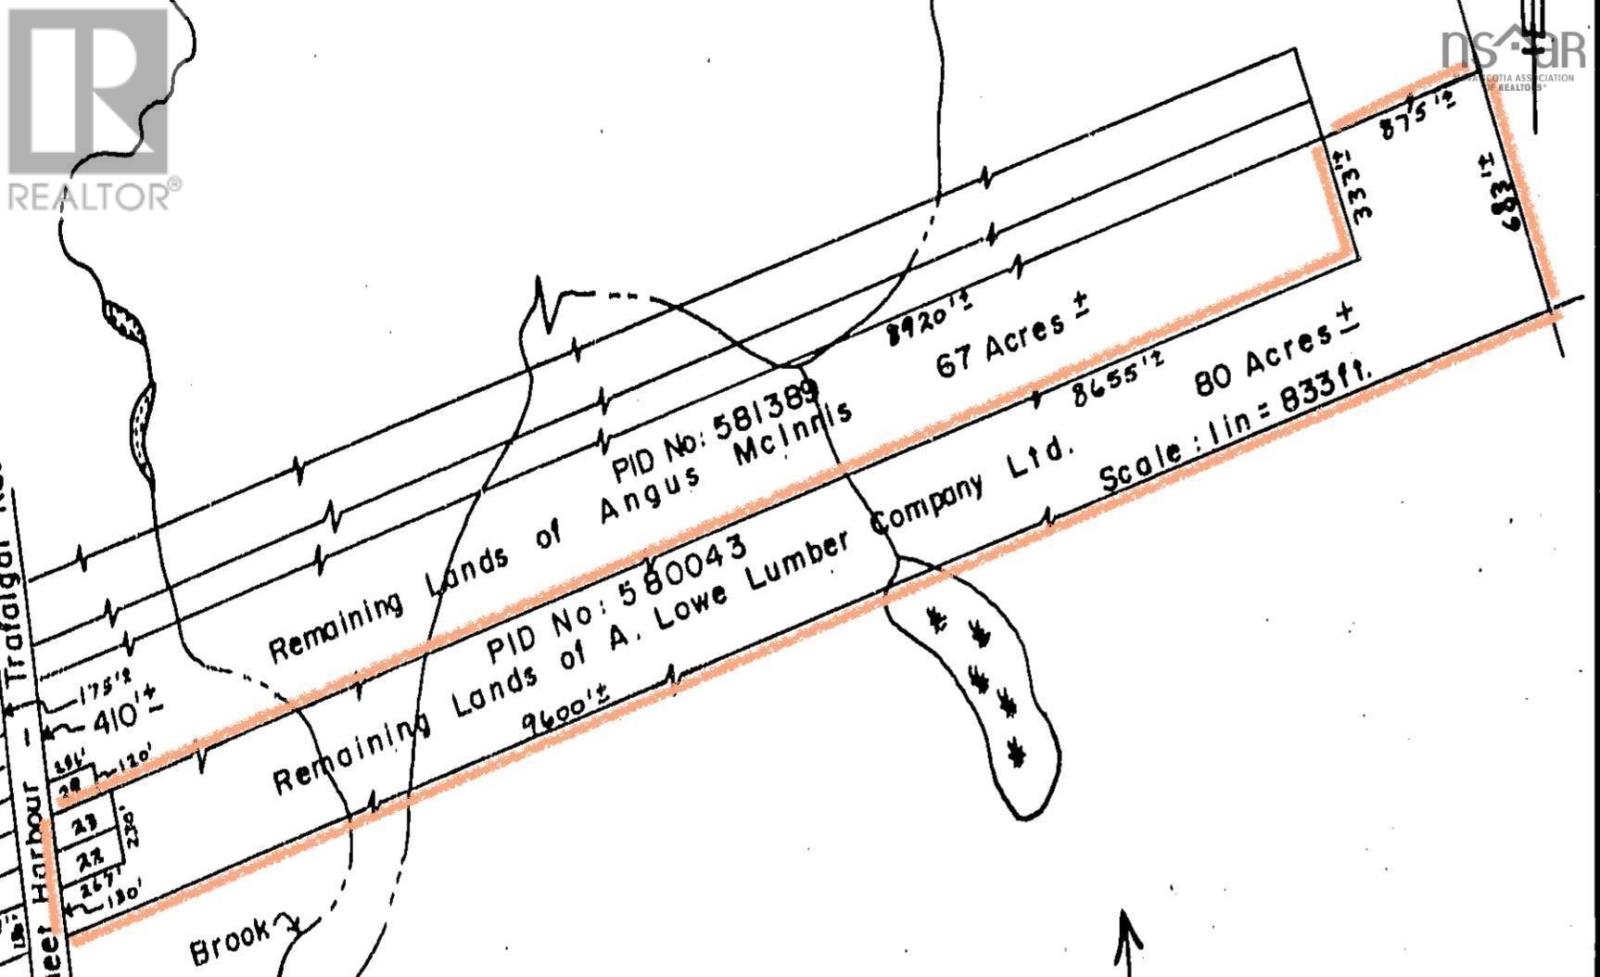 REALTOR®
nsar
NOVA SCOTIA ASSOCIATION
OF REALTORS®
875'±
333'±
683'±
8920'±
67 Acres ±
PID No: 581389
Remaining Lands of Angus McInnis
8655'±
80 Acres ±
PID No: 580043
Remaining Lands of A. Lowe Lumber Company Ltd.
Scale: 1in = 833ft.
9600'±
Trafalgar
175'±
410'±
120'
29
23
230'
22
267'
130'
Harbour -
Brook